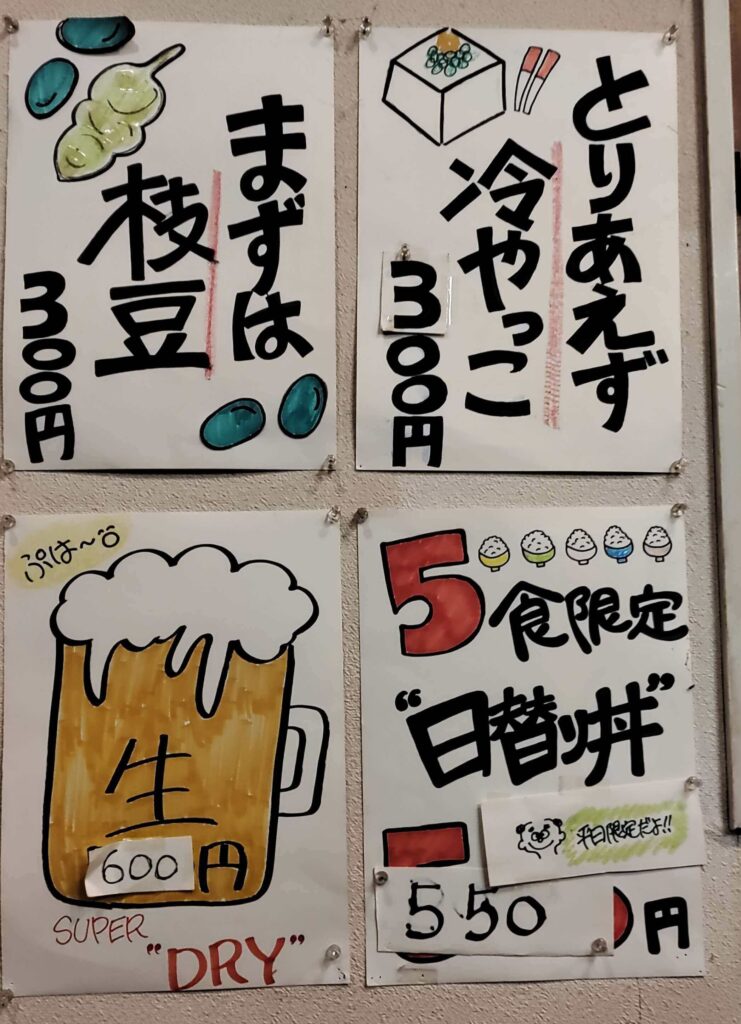 まずは
枝豆
300円
とりあえず
冷やっこ
300円
ぷは〜
生
600円
SUPER
"DRY"
5食限定
“日替り丼”
平日限定だよ!!
550円